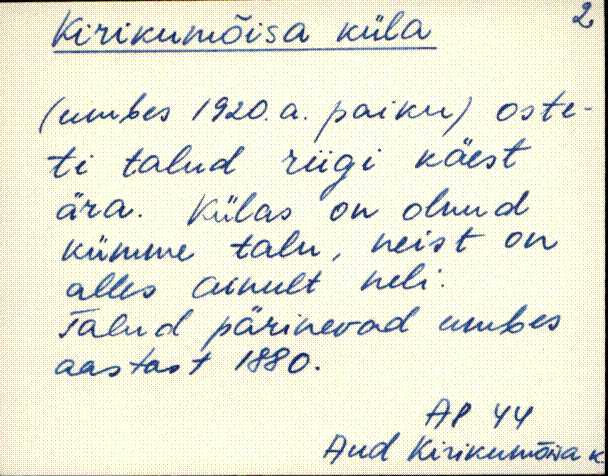 2
Kirikumõisa küla
(umbes 1920.a. paiku) oste-
ti talud riigi käest
ära. Külas on olnud
kümme talu, neist on
alles ainult neli.
Talud pärinevad umbes
aastast 1880.
AP 44
And Kirikumõisa k